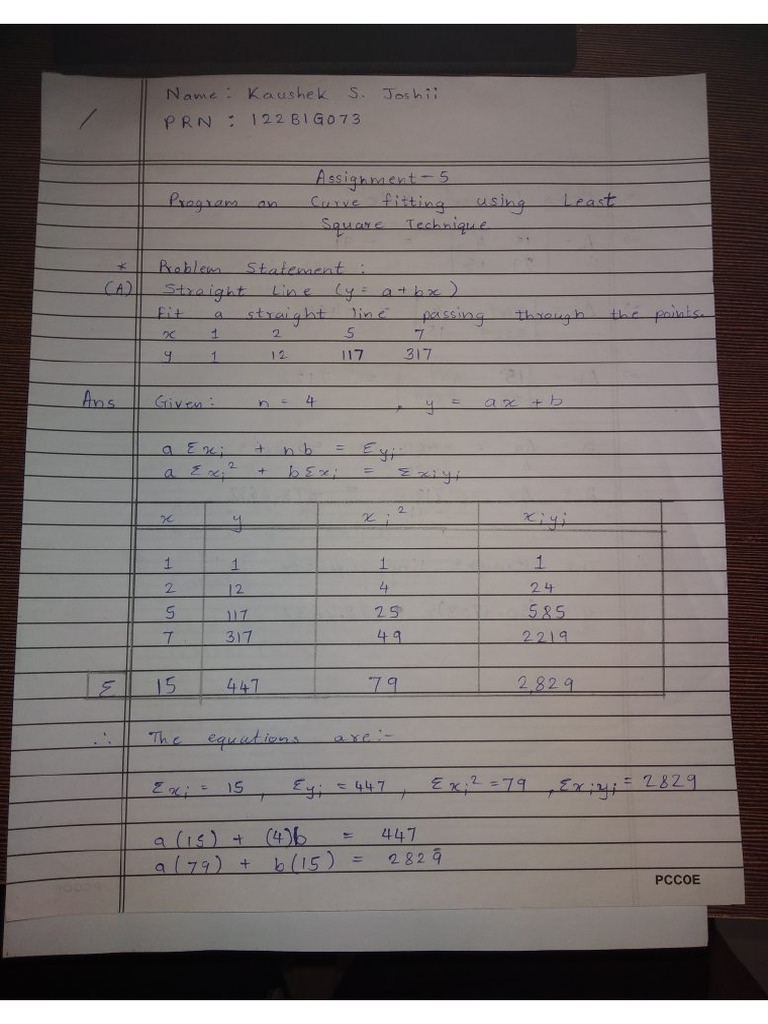 Name: Kaushek S. Joshii
PRN : 122B1G073
Assignment-5
Program on Curve fitting using Least
Square Technique
* Problem Statement :
(A) Straight Line (y = a + bx)
Fit a straight line passing through the points.
x 1 2 5 7
y 1 12 117 317
Ans Given: n = 4 , y = ax + b
a Σxi + nb = Σyi
a Σxi² + bΣxi = Σxiyi
x y xi² xiyi
1 1 1 1
2 12 4 24
5 117 25 585
7 317 49 2219
Σ 15 447 79 2,829
∴ The equations are:-
Σxi = 15 , Σyi = 447 , Σxi² = 79 , Σxiyi = 2829
a(15) + (4)b = 447
a(79) + b(15) = 2829
PCCOE